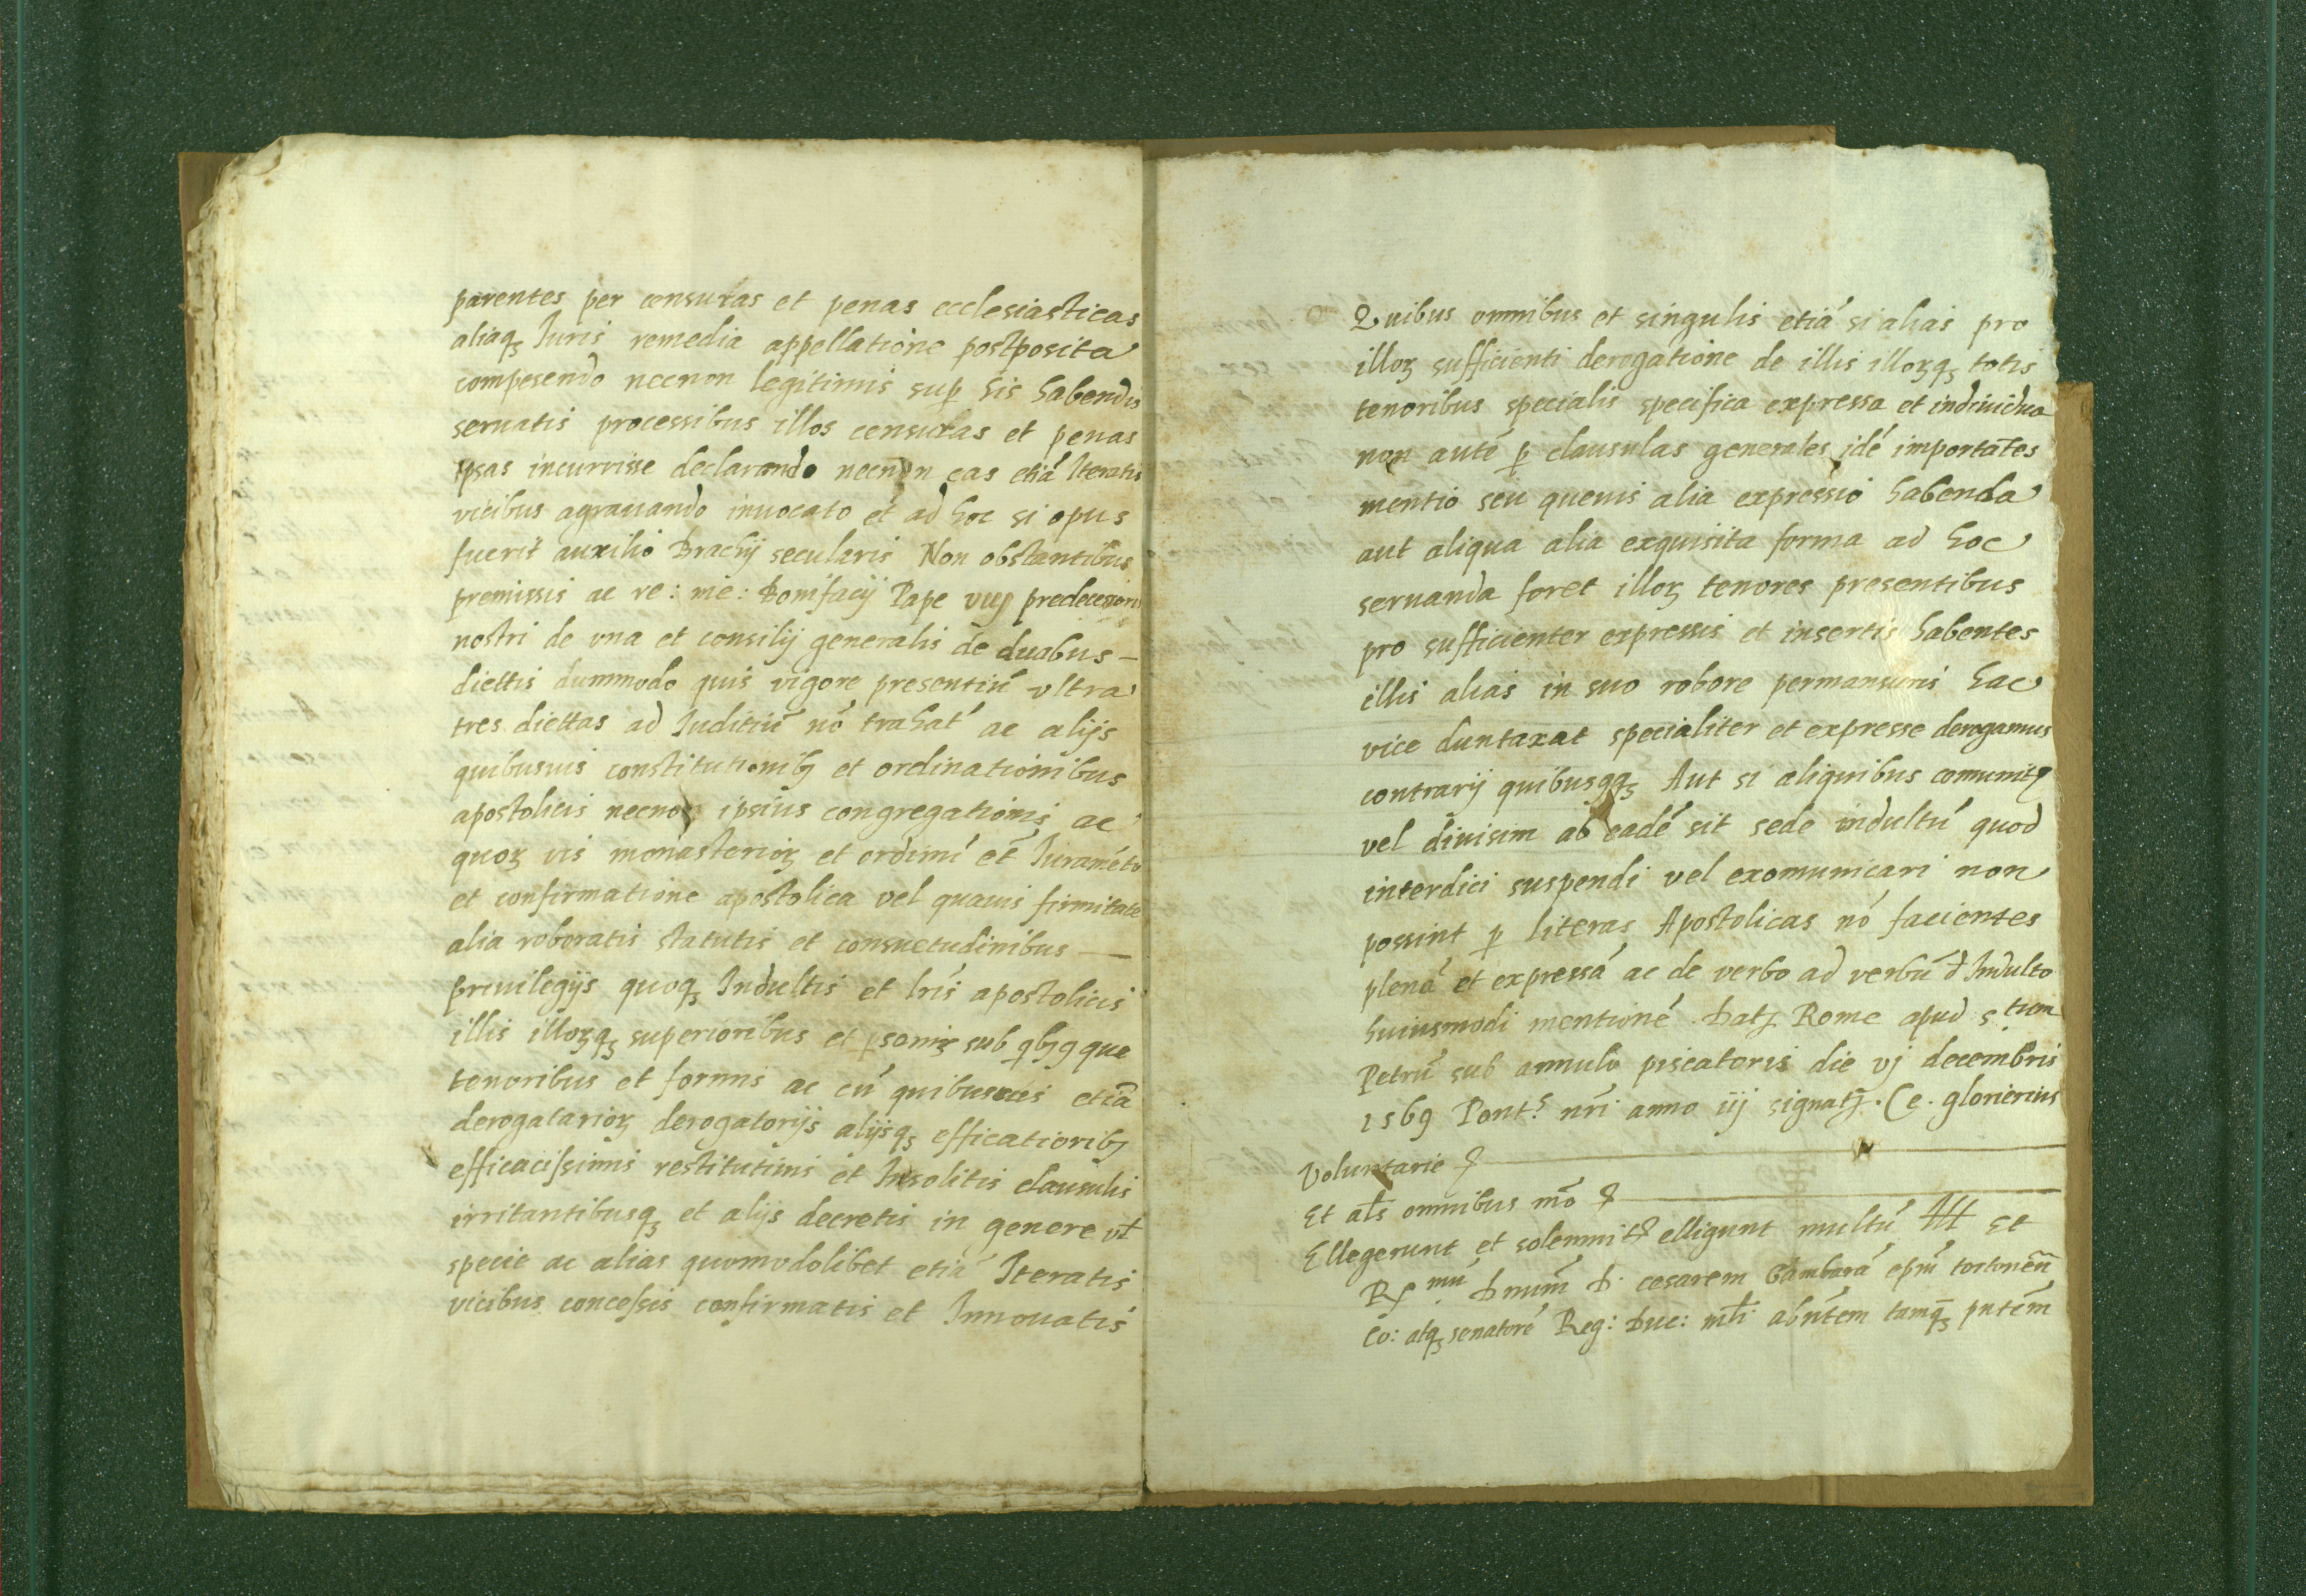 parentes per censuras et penas ecclesiasticas
aliaqꝫ Iuris remedia appellatione postposita
compesendo necnon legitimis suꝑ his habendis
seruatis processibus illos censuras et penas
ipsas incurrisse declarando necnon eas etiá Iteratis
vicibus agrauando inuocato et ad hoc si opus
fuerit auxilio Brachij secularis Non obstantibus
premissis ac re: me: Bonifacij Pape viij predecessoris
nostri de vna et consilij generalis de duabus –
diettis dummodo quis vigore presentiú vltra
tres diettas ad Iuditiú nó trahat́ ac alijs
quibusuis constitutionibꝫ et ordinationibus
apostolicis necnon ipsius congregationis ac
quoꝝ vis monasterioꝝ et ordinú et́ Iuraméto
et confirmatione apostolica vel quauis firmitate
alia roboratis statutis et consuetudinibus —
priuilegijs quoqꝫ Indultis et lrís apostolicis
illis illoꝝqꝫ superioribus et ꝑsonis sub qbꝫꝯ que
tenoribus et formis ac cú quibusuis etiā
derogatarioꝝ derogatorijs alijsqꝫ efficatioribꝫ
efficacissimis restitutinis et Insolitis clausulis
irritantibusqꝫ et alijs decretis in genere vł
specie ac alias quomodolibet etiá Iteratis
vicibus concessis confirmatis et Innouatis
Quibus omnibus et singulis etiá si alias pro
illoꝝ sufficienti derogatione de illis illoꝝqꝫ totis
tenoribus specialis specifica expressa et indiuidua
non auté ꝑ clausulas generales idé importātes
mentio seu queuis alia expressio habenda
aut aliqua alia exquisita forma ad hoc
seruanda foret illoꝝ tenores presentibus
pro sufficienter expressis et insertis habentes
illis alias in suo robore permansuris hac
vice duntaxat specialiter et expresse derogamus
contrarij quibusꝯqꝫ Aut si aliquibus comunitꝭ
vel diuisim ab eadé sit sede indultú quod
interdici suspendi vel exomunicari non
possint ꝑ literas Apostolicas nó facientes
plená et expressá ac de verbo ad verbú d Indulto
huiusmodi mentioné. Datꝭ Rome apud stum
Petrú sub annulo piscatoris die vj decembris
1569 Ponts nrí anno iiij signatꝭ. Ce. glorierius
Voluntarie ꝭ
Et als omnibus mō ꝭ
Ellegerunt et solemnitꝭ elligunt multú Ill Et
R mú Dnum̄ D. cesarem Gambará ep̄m tortoneñ
Co: atqꝫ senatoré Reg: Duc: mlí abńtem tamqꝫ pńtem